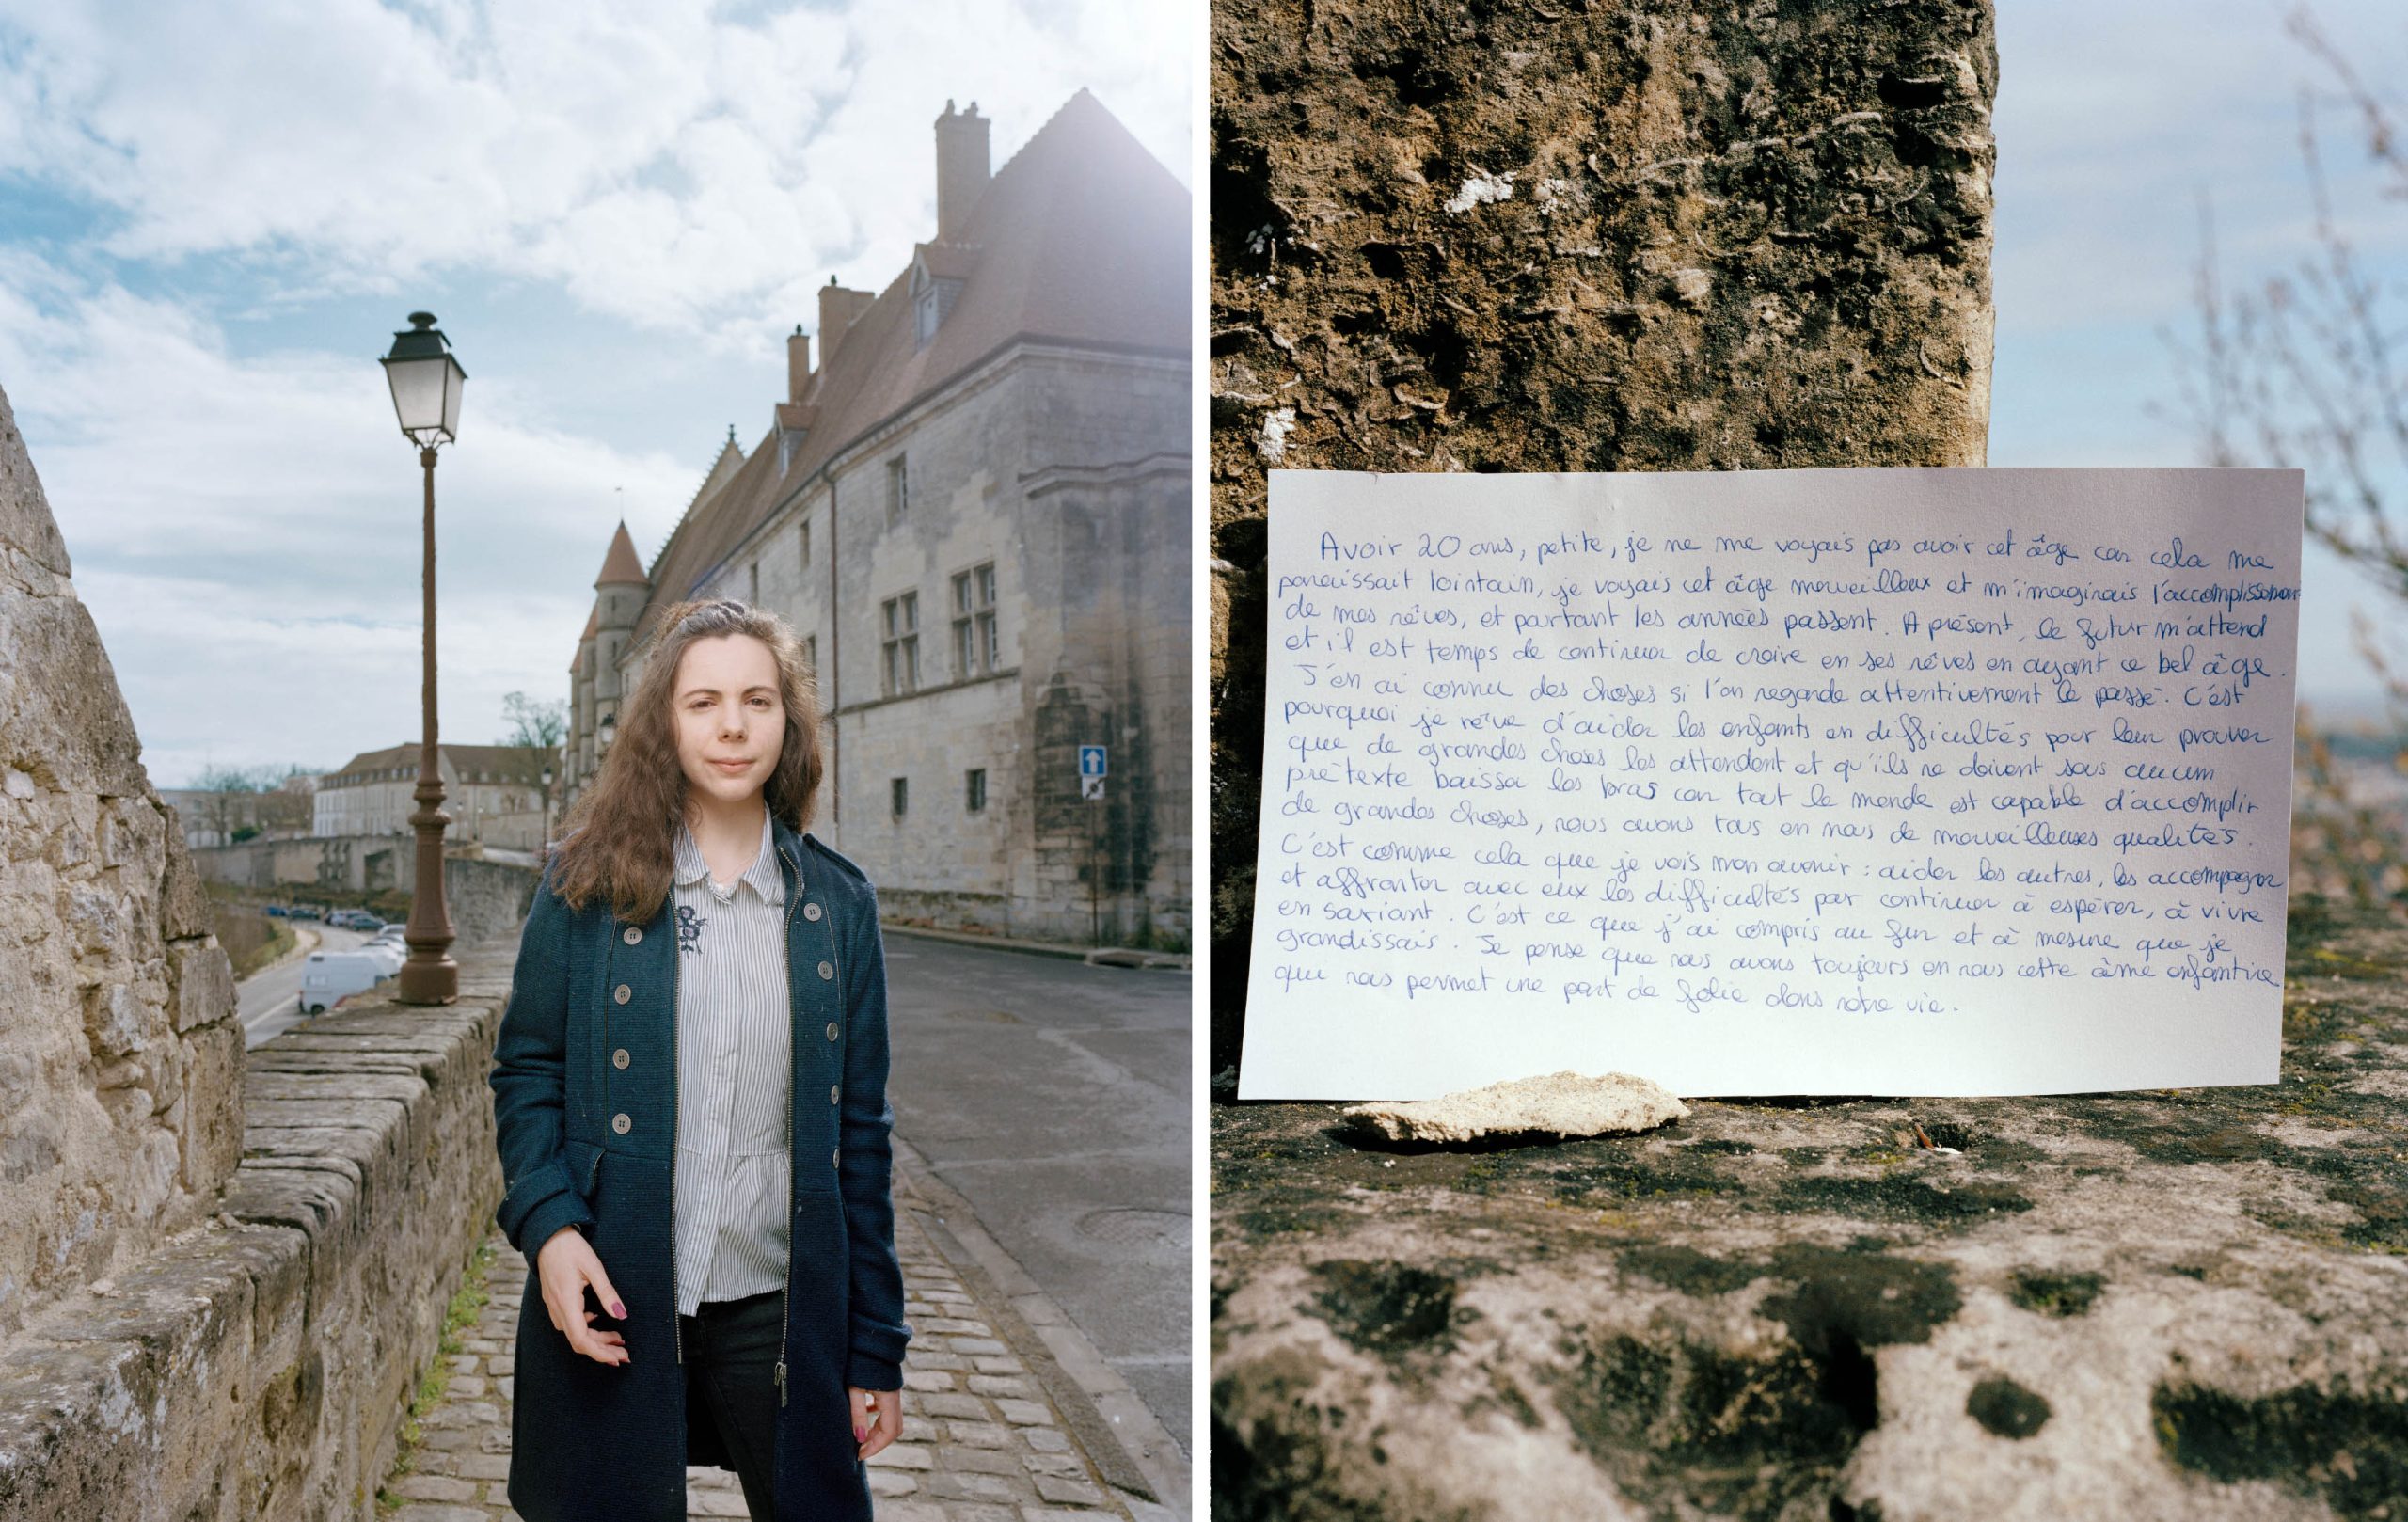 Avoir 20 ans, petite, je ne me voyais pas avoir cet âge car cela me
paraissait lointain, je voyais cet âge merveilleux et m'imaginais l'accomplissement
de mes rêves, et pourtant les années passent. A présent, le futur m'attend
et il est temps de continuer de croire en ses rêves en ayant ce bel âge.
J'en ai connu des choses si l'on regarde attentivement le passé. C'est
pourquoi je rêve d'aider les enfants en difficultés pour leur prouver
que de grandes choses les attendent et qu'ils ne doivent sous aucun
prétexte baisser les bras car tout le monde est capable d'accomplir
de grandes choses, nous avons tous en nous de merveilleuses qualités.
C'est comme cela que je vois mon avenir : aider les autres, les accompagner
et affronter avec eux les difficultés par continuer à espérer, à vivre
en souriant. C'est ce que j'ai compris au fur et à mesure que je
grandissais. Je pense que nous avons toujours en nous cette âme enfantine
qui nous permet une part de folie dans notre vie.